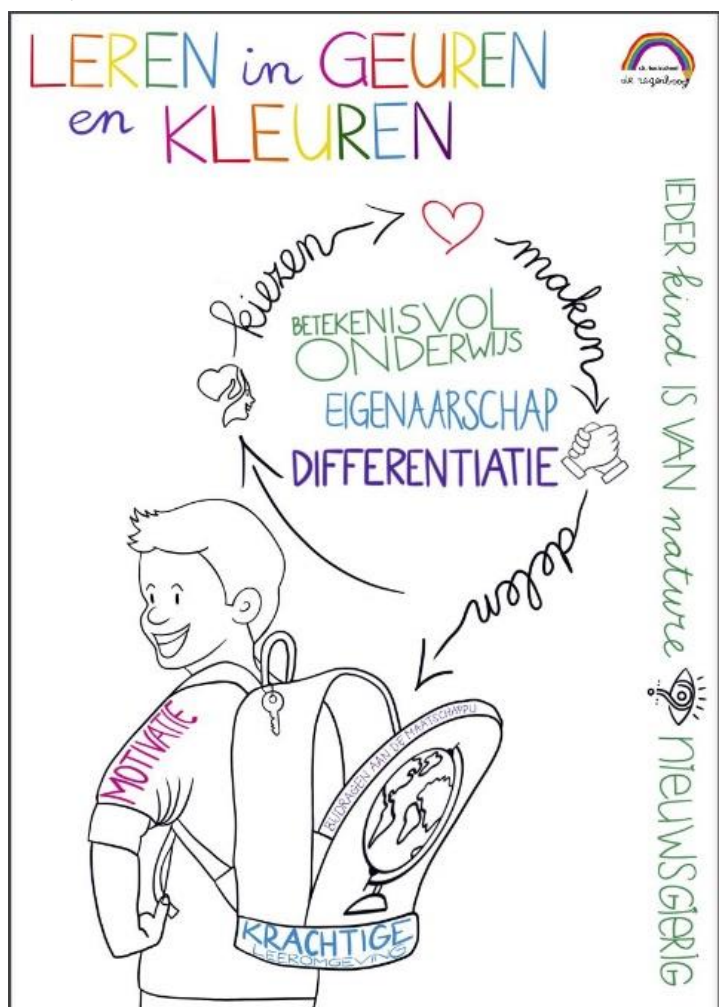 LEREN in GEUREN
en KLEUREN
c.b. basisschool
de regenboog
kiezen
maken
delen
BETEKENISVOL
ONDERWIJS
EIGENAARSCHAP
DIFFERENTIATIE
IEDER kind IS VAN nature NIEUWSGIERIG
MOTIVATIE
BIJDRAGEN AAN DE MAATSCHAPPIJ
KRACHTIGE
LEEROMGEVING